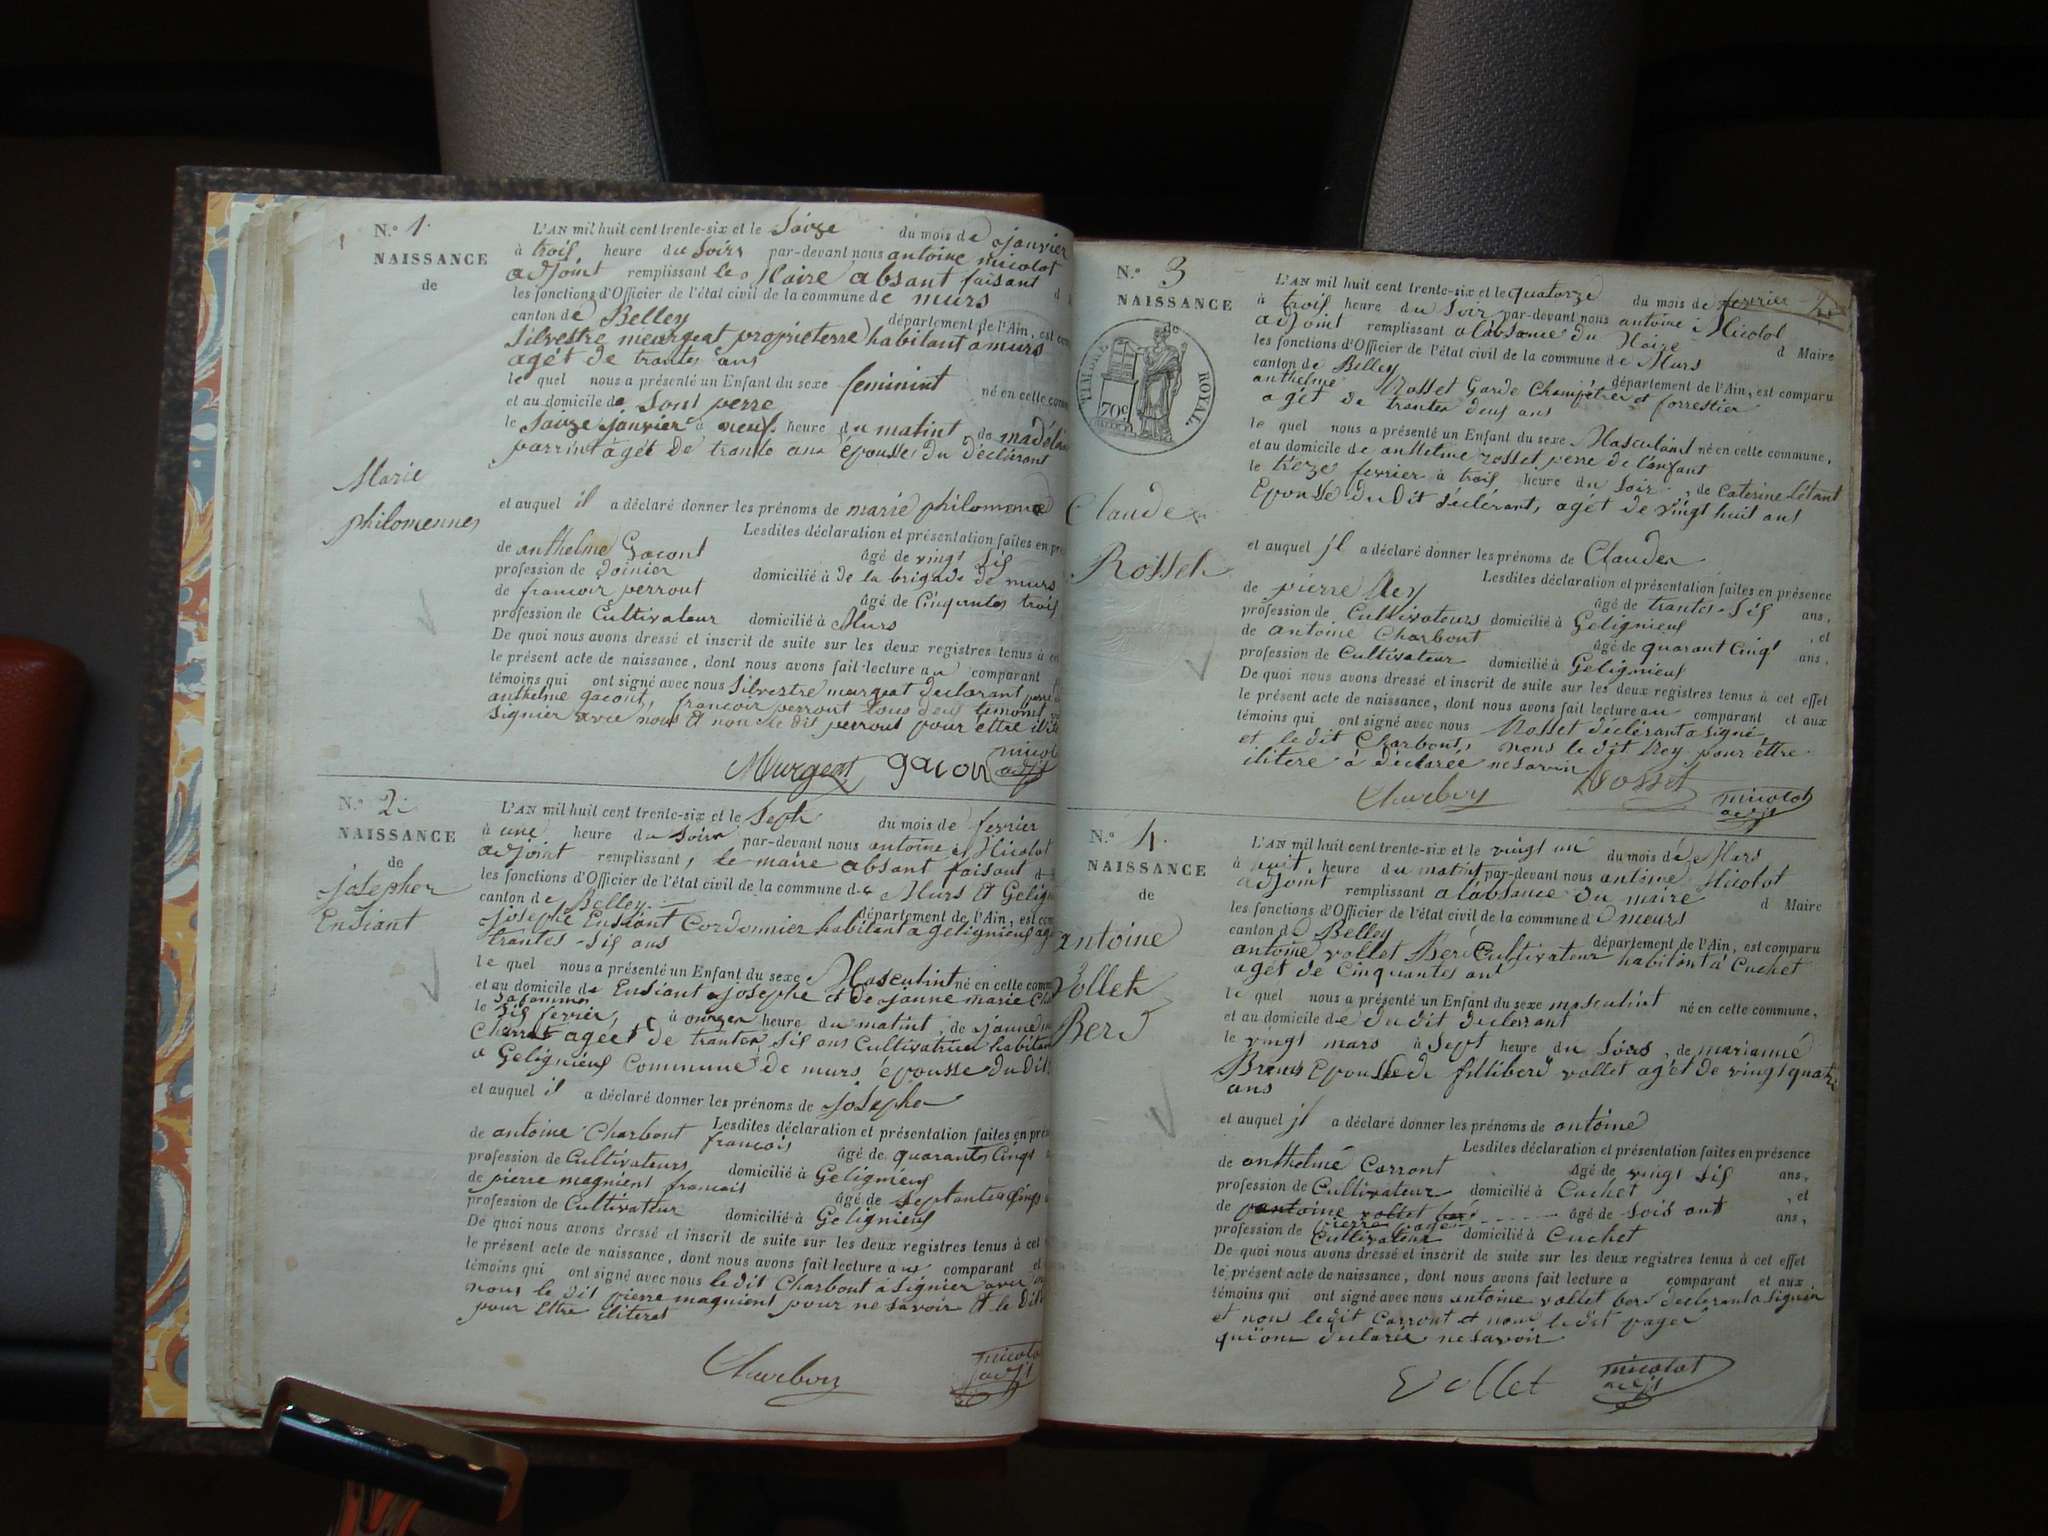 N.o 1.
NAISSANCE
de
Marie
philomennes
L'AN mil huit cent trente-six et le Saize du mois de janvier
à trois heure du Soirs par-devant nous antoine micolot
adjoint remplissant le Maire absant faisant
les fonctions d'Officier de l'état civil de la commune de murs
canton de Belley département de l'Ain, est
Silvestre meurgeat proprieterre habitant a murs
agét de trantes ans
le quel nous a présenté un Enfant du sexe feminint né en cette
et au domicile de Sont perre
le Saize janvier à neuf heure du matint, de
parrint agét de trante ans épousse du déclárant
et auquel il a déclaré donner les prénoms de marie philomene
Lesdites déclaration et présentation faites en
de anthelme Gacont âgé de vingt Sis
profession de doinier domicilié à de la brigade de murs
de francoir perrout âgé de Cinquantes trois
profession de Cultivateur domicilié à Murs
De quoi nous avons dressé et inscrit de suite sur les deux registres tenus à
le présent acte de naissance, dont nous avons fait lecture au comparant
témoins qui ont signé avec nous Silvestre murgeat declarant
anthelme gacont, francoir perrout tous deus temoint
Signier avec nous et non le dit perrout pour ettre
Murgeat gacon
N.o 2
NAISSANCE
de
josepher
Ensiant
L'AN mil huit cent trente-six et le Septs du mois de fevrier
à une heure du Soirs par-devant nous antoine Micolot
adjoint remplissant, le maire absant faisant
les fonctions d'Officier de l'état civil de la commune de Murs et
canton de Belley
département de l'Ain, est
josephe Ensiant Cordonnier habitant a Gelignieus
trantes-sis ans
le quel nous a présenté un Enfant du sexe Masculint né en cette
et au domicile de Ensiant josephe et de janne marie
le sis fevrier, à onzer heure du matint, de janne
agéet de trantes sis ans Cultivatrice
a Gelignieus Commune de murs épousse du dit
et auquel il a déclaré donner les prénoms de josepher
Lesdites déclaration et présentation faites en
de antoine Charbont francois âgé de quarantes Cinqt
profession de Cultivateurs domicilié à Gelignieus
de pierre magnient francais âgé de
profession de Cultivateur domicilié à Gelignieus
De quoi nous avons dressé et inscrit de suite sur les deux registres tenus à cet
le présent acte de naissance, dont nous avons fait lecture aux comparant
témoins qui ont signé avec nous le dit Charbont à Signier avec
nous le dit pierre magnient pour ne savoir et le dit
pour Ettre iliteret
Charbon micolot
adjt
N.o 3
NAISSANCE
de
TIMBRE ROYAL
70c
Claude
Rosset
L'AN mil huit cent trente-six et le quatorze du mois de fevrier
à trois heure du Soir par-devant nous antoine Micolot
adjoint remplissant a labsance du Maire d Maire
les fonctions d'Officier de l'état civil de la commune de Murs
canton de Belley département de l'Ain, est comparu
anthelme Rosset Garde Champétrer et forrestier
agét de trantes deus ans
le quel nous a présenté un Enfant du sexe Masculint né en cette commune,
et au domicile de anthelme rosset perre de lanfant
le treze fevrier à trois heure du Soir, de Caterine Létant
Epousse du dit déclérant, agét de vingt huit ans
et auquel jl a déclaré donner les prénoms de Clauder
Lesdites déclaration et présentation faites en présence
de pierre Rey âgé de trantes-Sis ans,
profession de Cultivateurs domicilié à Gelignieus , et
de antoine Charbont âgé de quarant Cinqt ans,
profession de Cultivateur domicilié à Gelignieus
De quoi nous avons dressé et inscrit de suite sur les deux registres tenus à cet effet
le présent acte de naissance, dont nous avons fait lecture au comparant et aux
témoins qui ont signé avec nous Rosset déclérant a signé,
et le dit Charbont, nons le dit Rey pour éttre
ilitere à déclarée ne savoir
Rosset
Charbon micolot
adjt
N.o 4.
NAISSANCE
de
antoine
Vollet
Ber
L'AN mil huit cent trente-six et le vingt un du mois de Mars
à huit, heure du matint par-devant nous antoine Micolot
adjoint remplissant a labsance du maire d Maire
les fonctions d'Officier de l'état civil de la commune d meurs
canton de Belley
département de l'Ain, est comparu
antoine vollet Ber Cultivateur habitant à Cuchet
agét de Cinquantes ans
le quel nous a présenté un Enfant du sexe masculint né en cette commune,
et au domicile de du dit declarant
le vingt mars à Sept heure du Soirs, de marianne
Epousse de filliber vollet agét de vingt quatre
ans
et auquel jl a déclaré donner les prénoms de antoine
Lesdites déclaration et présentation faites en présence
de anthelme Carront âgé de vingt Sis ans,
profession de Cultivateur domicilié à Cuchet , et
de antoine vollet ber âgé de Sois ant ans,
pierre pager
profession de Cultivateur domicilié à Cuchet
De quoi nous avons dressé et inscrit de suite sur les deux registres tenus à cet effet
le présent acte de naissance, dont nous avons fait lecture a comparant et aux
témoins qui ont signé avec nous antoine vollet ber declarant a signier
et nons ledit Carront et nons le dit pager
qui ont declarée ne savoir
Vollet micolot
adjt